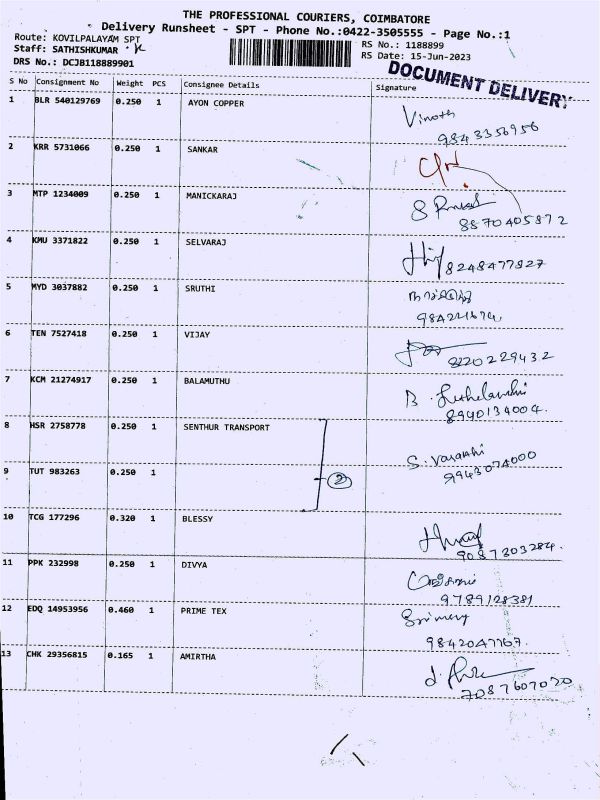 THE PROFESSIONAL COURIERS, COIMBATORE
Delivery Runsheet - SPT - Phone No.:0422-3505555 - Page No.:1
Route: KOVILPALAYAM SPT
Staff: SATHISHKUMAR * K
DRS No.: DCJB118889901
RS No.: 1188899
RS Date: 15-Jun-2023
DOCUMENT DELIVERY
S No Consignment No Weight PCS Consignee Details Signature
1 BLR 540129769 0.250 1 AYON COPPER Vinoth
9843356956
2 KRR 5731066 0.250 1 SANKAR
3 MTP 1234009 0.250 1 MANICKARAJ
8870405872
4 KMU 3371822 0.250 1 SELVARAJ 8248477827
5 MYD 3037882 0.250 1 SRUTHI
6 TEN 7527418 0.250 1 VIJAY 8220229432
7 KCM 21274917 0.250 1 BALAMUTHU
8940134004.
8 HSR 2758778 0.250 1 SENTHUR TRANSPORT
9943074000
9 TUT 983263 0.250 1 2
10 TCG 177296 0.320 1 BLESSY
9087303284.
11 PPK 232998 0.250 1 DIVYA
9789128381
12 EDQ 14953956 0.460 1 PRIME TEX
9842047767.
13 CHK 29356815 0.165 1 AMIRTHA
7087607020